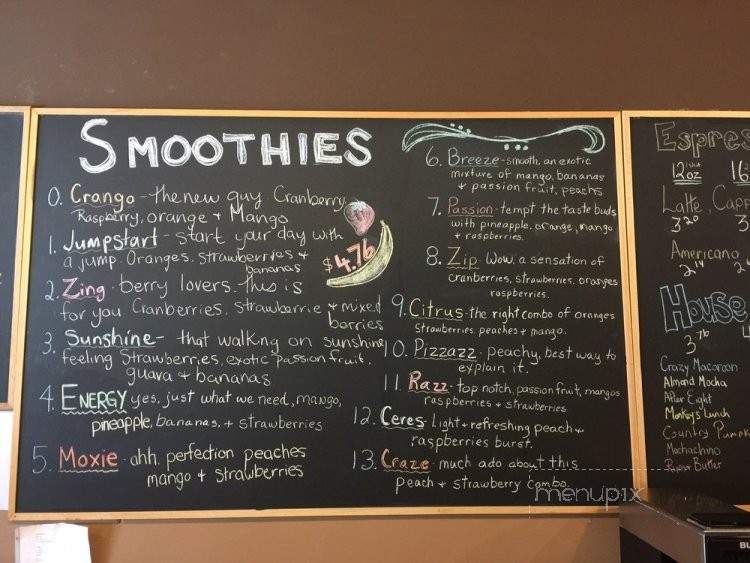 SMOOTHIES
0. Crango - the new guy Cranberry
Raspberry, orange + Mango
1. Jumpstart - start your day with
a jump. Oranges. Strawberries &
bananas
$4.76
2. Zing - berry lovers. this is
for you Cranberries, Strawberrie + mixed
berries
3. Sunshine - that walking on sunshine
feeling Strawberries, exotic passion fruit.
guava & bananas
4. ENERGY yes, just what we need, mango,
pineapple, bananas, + strawberries
5. Moxie - ahh. perfection peaches
mango + strawberries
6. Breeze - smooth, an exotic
mixture of mango, bananas
+ passion fruit, peachs
7. Passion - tempt the taste buds
with pineapple, orange, mango
+ raspberries.
8. Zip Wow, a sensation of
cranberries, strawberries, oranges
raspberries.
9. Citrus - the right combo of oranges
Strawberries, peaches + mango.
10. Pizzazz - peachy, best way to
explain it.
11. Razz - top notch, passion fruit, mangos
raspberries + strawberries
12. Ceres - Light + refreshing peach +
raspberries burst.
13. Craze - much ado about this
peach + strawberry combo.
Espres
12oz 16
Latte, Capp
3.20 3
Americano
2.14 2
House
3.76
Crazy Macaroon
Almond Mocha
After Eight
Monkey's Lunch
Country Pumpk
Mochachino
Butter
menupix
BU